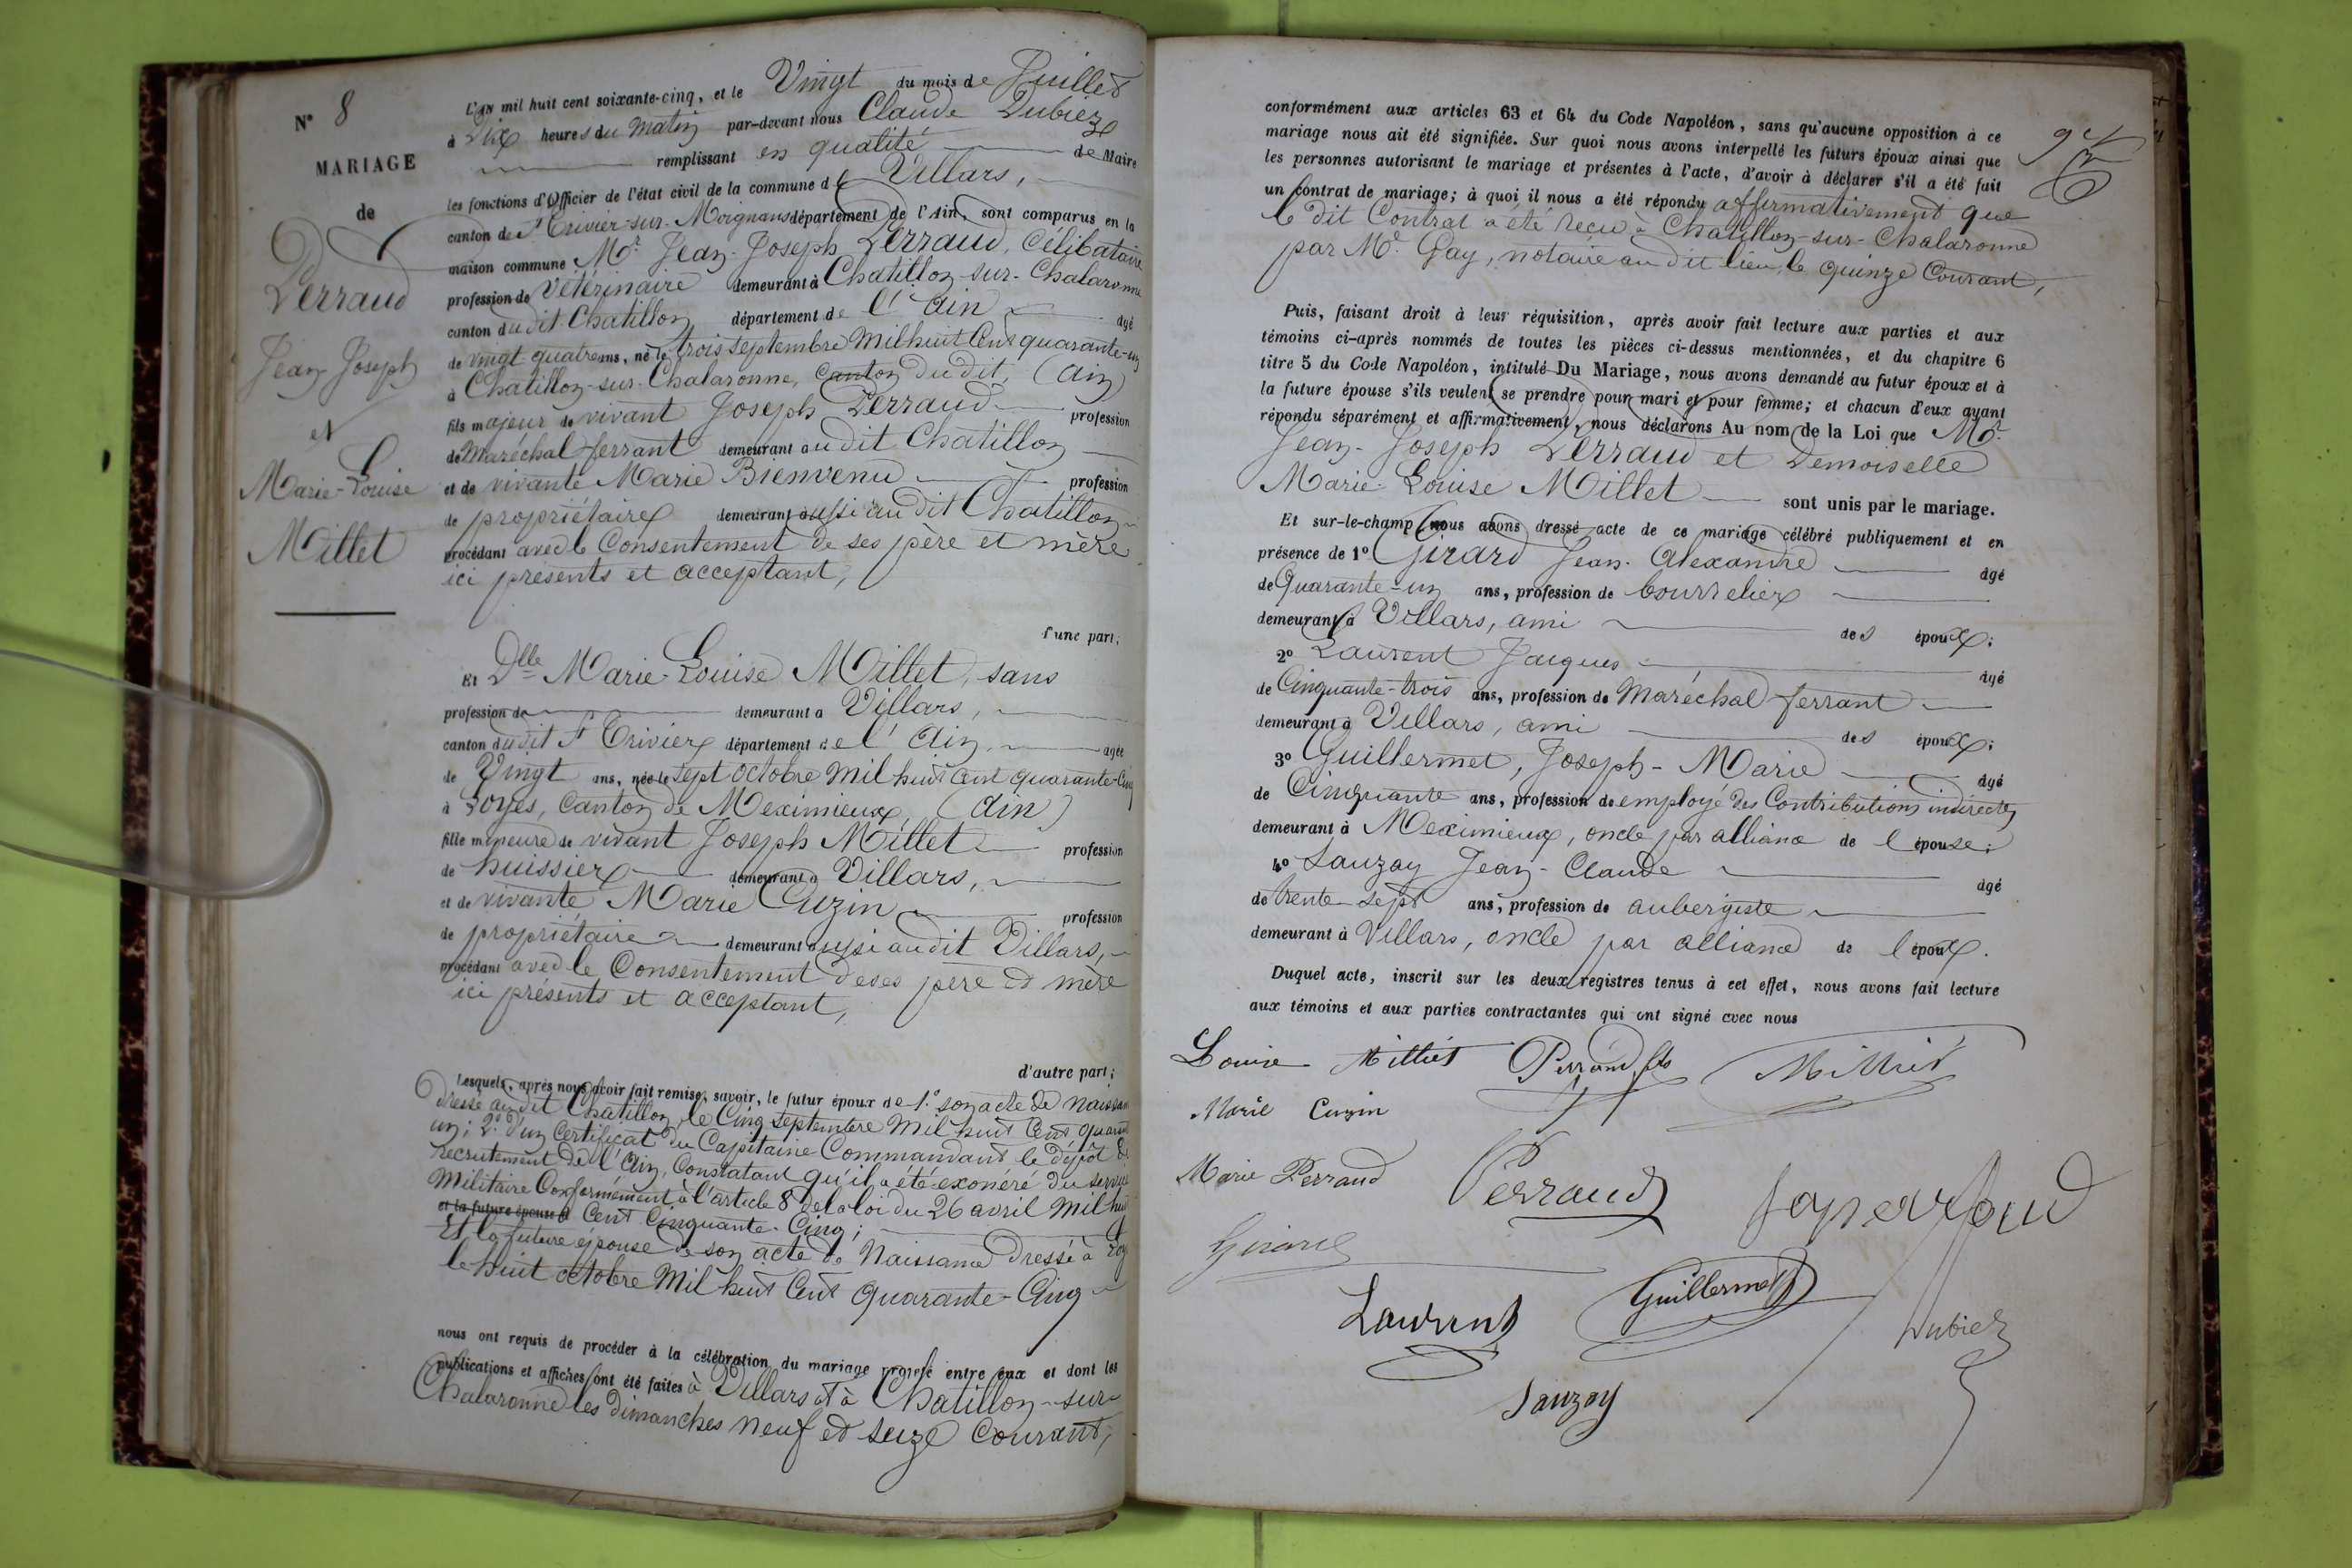 N° 8
MARIAGE
de
Perraud
Jean Joseph
et
Marie-Louise
Millet
L'an mil huit cent soixante-cinq, et le Vingt du mois de Juillet
à Dix heures du Matin par-devant nous Claude Dubiez
remplissant en qualité de Maire
les fonctions d'Officier de l'état civil de la commune de Villars,
canton de St Trivier-sur-Moignans département de l'Ain, sont comparus en la
maison commune Mr. Jean-Joseph Perraud, Célibataire
profession de Vétérinaire demeurant à Chatillon-sur-Chalaronne
canton du dit Chatillon département de l'Ain âgé
de vingt quatre ans, né le trois septembre Mil huit Cent quarante-un
à Chatillon-sur-Chalaronne, Canton du dit, (Ain)
fils majeur de vivant Joseph Perraud profession
de Maréchal-ferrant demeurant au dit Chatillon
et de vivante Marie Bienvenu profession
de propriétaire demeurant aussi au dit Chatillon
procédant avec le Consentement de ses père et mère
ici présents et acceptant,
d'une part;
Et Dlle Marie-Louise Millet, sans
profession de demeurant à Villars,
canton du dit St Trivier département de l'Ain, âgée
de Vingt ans, née le sept octobre Mil huit cent quarante-Cinq
à Loyes, Canton de Meximieux, (Ain)
fille mineure de vivant Joseph Millet profession
de huissier demeurant à Villars,
et de vivante Marie Cuzin profession
de propriétaire demeurant aussi au dit Villars,
procédant avec le Consentement de ses père et mère
ici présents et acceptant,
d'autre part;
Lesquels, après nous avoir fait remise, savoir, le futur époux de 1.° son acte de Naissan
dressé au dit Chatillon, le Cinq septembre Mil huit Cent quarant
un; 2.° d'un Certificat du Capitaine Commandant le dépôt de
recrutement de l'Ain, Constatant qu'il a été exonéré du service
Militaire Conformément à l'article 8 de la loi du 26 avril Mil huit
et la future épouse d Cent Cinquante-Cinq;
Et la future épouse de son acte de Naissance dressé à Loy
le huit octobre Mil huit Cent Quarante-Cinq
nous ont requis de procéder à la célébration du mariage projeté entre eux et dont les
publications et affiches ont été faites à Villars et à Chatillon-sur-
Chalaronne les dimanches neuf et seize Courant,
conformément aux articles 63 et 64 du Code Napoléon, sans qu'aucune opposition à ce
mariage nous ait été signifiée. Sur quoi nous avons interpellé les futurs époux ainsi que
les personnes autorisant le mariage et présentes à l'acte, d'avoir à déclarer s'il a été fait
un contrat de mariage; à quoi il nous a été répondu affirmativement que
le dit Contrat a été reçu à Chatillon-sur-Chalaronne
par Me. Gay, notaire au dit lieu, le quinze Courant,
Puis, faisant droit à leur réquisition, après avoir fait lecture aux parties et aux
témoins ci-après nommés de toutes les pièces ci-dessus mentionnées, et du chapitre 6
titre 5 du Code Napoléon, intitulé Du Mariage, nous avons demandé au futur époux et à
la future épouse s'ils veulent se prendre pour mari et pour femme; et chacun d'eux ayant
répondu séparément et affirmativement, nous déclarons Au nom de la Loi que Mr.
Jean-Joseph Perraud et Demoiselle
Marie-Louise Millet sont unis par le mariage.
Et sur-le-champ nous avons dressé acte de ce mariage célébré publiquement et en
présence de 1° Girard Jean-Alexandre âgé
de Quarante-un ans, profession de bourrelier
demeurant à Villars, ami des époux;
2° Laurent Jacques âgé
de Cinquante-trois ans, profession de Maréchal-ferrant
demeurant à Villars, ami des époux;
3° Guillermet, Joseph-Marie âgé
de Cinquante ans, profession de employé des Contributions indirectes
demeurant à Meximieux, oncle par alliance de l'épouse;
4° Sauzay Jean-Claude âgé
de trente-sept ans, profession de aubergiste
demeurant à Villars, oncle par alliance de l'époux.
Duquel acte, inscrit sur les deux registres tenus à cet effet, nous avons fait lecture
aux témoins et aux parties contractantes qui ont signé avec nous
Louise Milliet Perraud fils Milliet
Marie Cuzin
Marie Perraud Perraud
Girard
Laurent Guillermet Dubiez
Sauzay